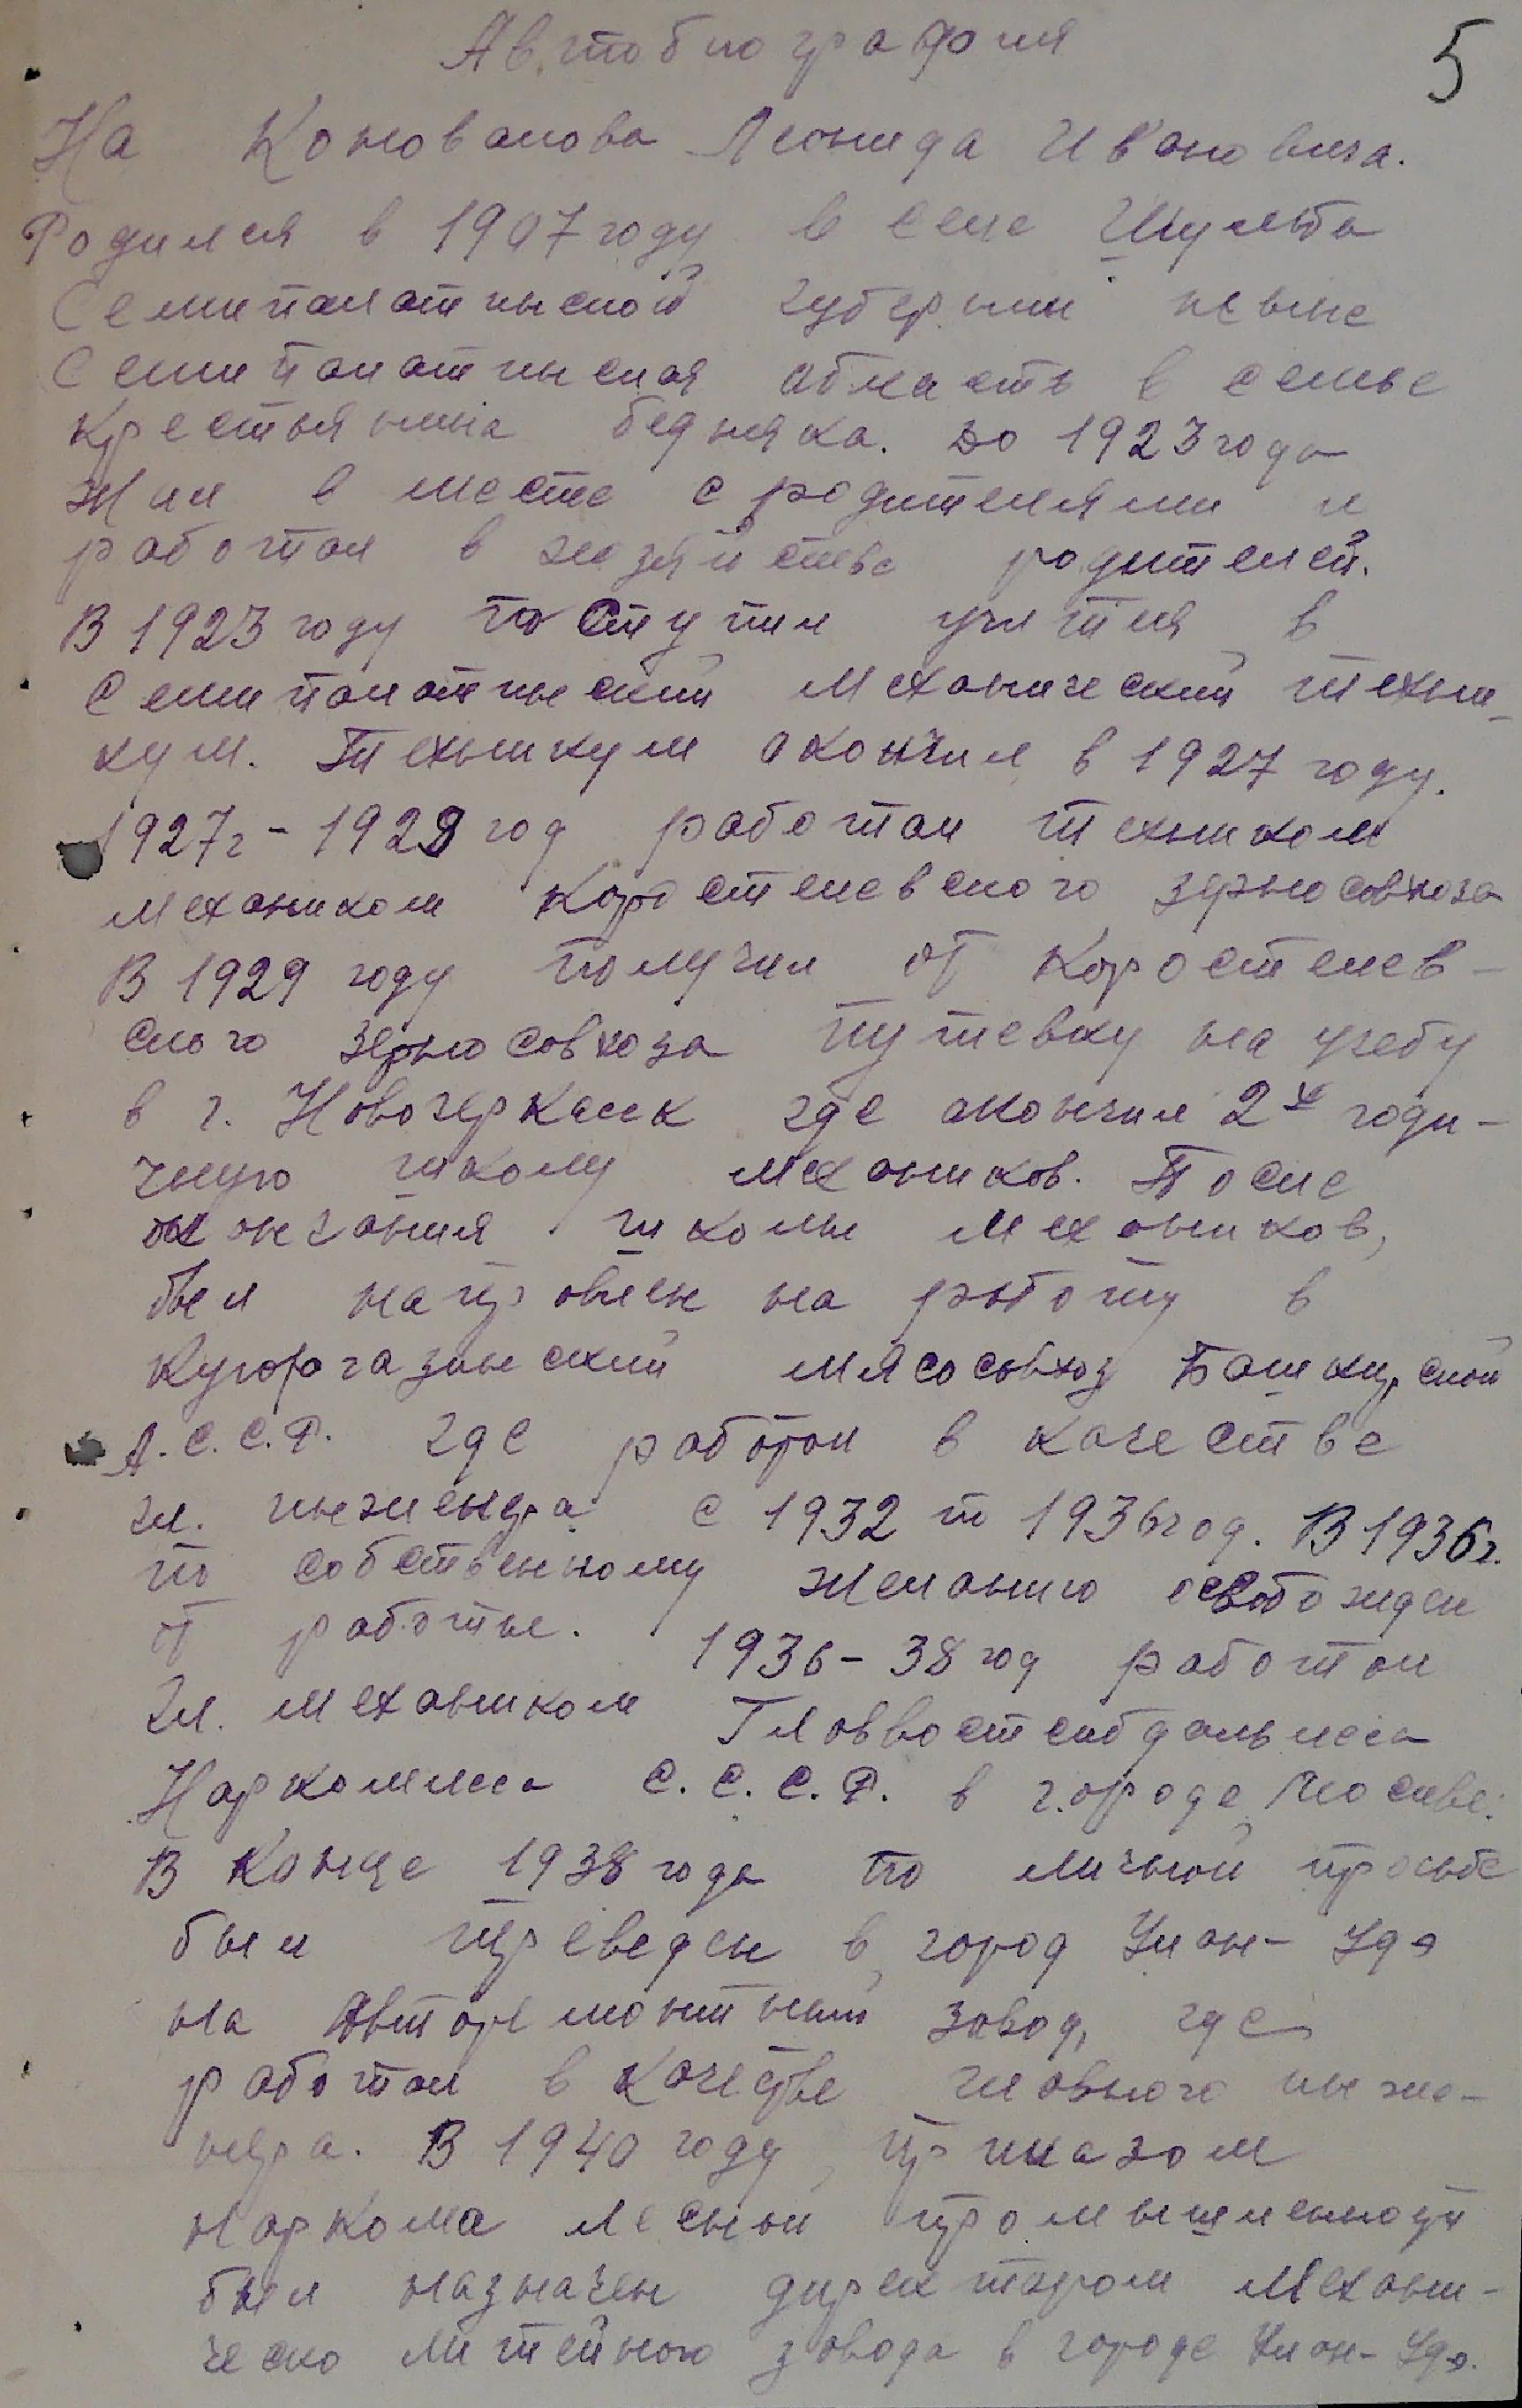 Автобиография
5
На Коновалова Леонида Ивановича.
Родился в 1907 году в селе Шульба
Семипалатинской губернии ныне
Семипалатинская область в семье
крестьянина бедняка. до 1923 года
жил в месте с родителями и
работал в хозяйстве родителей.
В 1923 году поступил учится в
Семипалатинский механический техни-
кум. Техникум окончил в 1927 году.
1927г - 1929 год работал техником
механиком Коростелевского зерносовхоза
В 1929 году получил от Коростелев-
ского зерносовхоза путевку на учебу
в г. Новочеркасск где окончил 2х годи-
чную школу механиков. После
окончания школы механиков,
был направлен на работу в
Кугарчазинский мясосовхоз Башкирской
А.С.С.Р. где работал в качестве
гл. инженера с 1932 по 1936 год. В 1936г.
по собственному желанию освобожден
от работы. 1936-38 год работал
Гл. механиком Главвостсибдальлеса
Наркомлеса С.С.С.Р. в городе Москве.
В Конце 1938 года по личной просьбе
был переведен в город Улан-Удэ
на Авторемонтный завод, где
работал в качестве главного инже-
нера. В 1940 году, приказом
наркома лесной промышленности
был назначен директором Механи-
ческо литейного завода в городе Улан-Удэ.